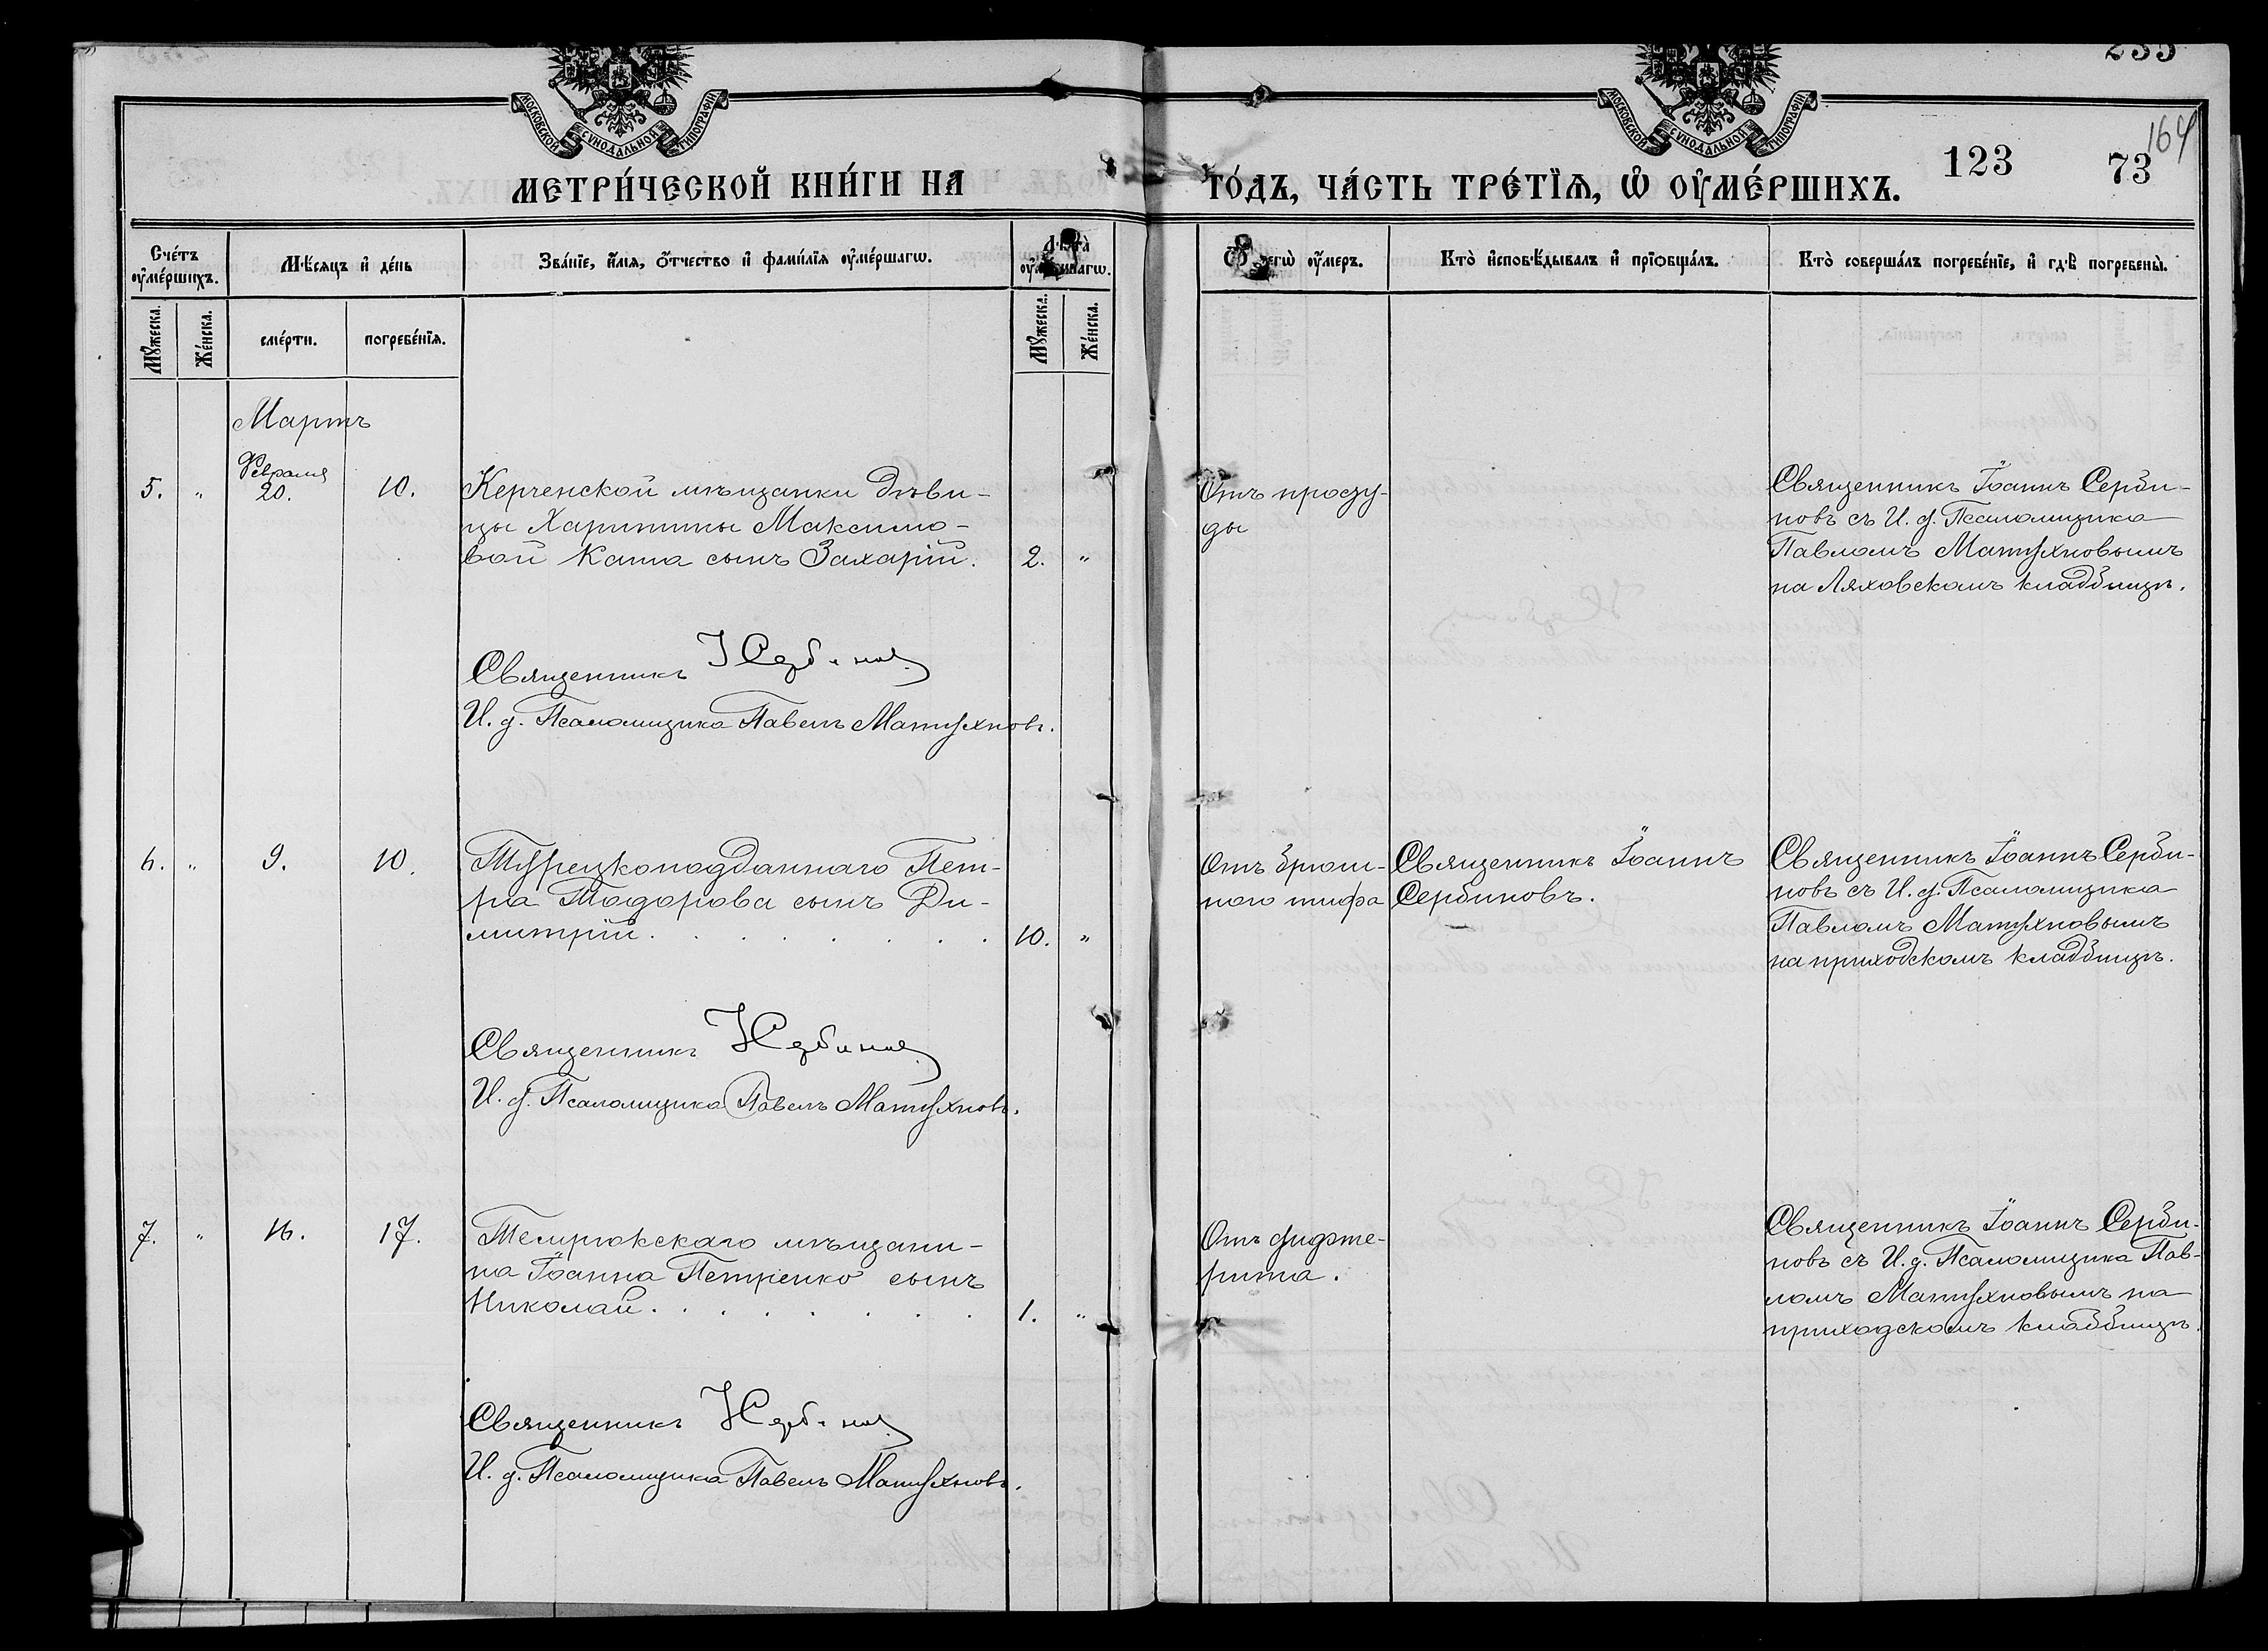 МОСКОВСКОЙ СѴНОДАЛЬНОЙ ТИПОГРАФІИ
МОСКОВСКОЙ СѴНОДАЛЬНОЙ ТИПОГРАФІИ
МЕТРИ́ЧЕСКОЙ КНИ́ГИ НА
ГО́ДЪ, ЧА́СТЬ ТРЕ́ТЇѦ, Ѡ҆ ОУ҆МЕ́РШИХЪ.
123
73
164
Сче́тъ оу҆ме́ршихъ.
Мѣ́сяцъ и҆ де́нь
Зва́нїе, и҆́мѧ, о҆́тчество и҆ фами́лїѧ оу҆ме́ршагѡ.
Лѣ́та̀ оу҆ме́ршагѡ.
Ѿ чегѡ̀ оу҆́меръ.
Кто̀ и҆сповѣ́дывалъ и҆ прїѡбща́лъ.
Кто̀ соверша́лъ погребе́нїе, и҆ гдѣ̀ погребены̀.
Мꙋ́жеска.
Же́нска.
сме́рти.
погребе́нїѧ.
Мꙋ́жеска.
Же́нска.
Мартъ
5. „ Февраля 20. 10.
Керченской мѣщанки дѣви-
цы Харитины Максимо-
войКата сынъ Захарій. 2. „
Отъ просту-
ды
Священникъ Іоаннъ Серби-
новъ съ И. д. Псаломщика
Павломъ Матухновымъ
на Ляховскомъ кладбищѣ.
Священникъ І Сербиновъ
И. д. Псаломщика Павелъ Матухновъ.
6. „ 9. 10.
Турецкоподданнаго Пет-
ра Тодорова сынъ Ди-
митрій. 10. „
Отъ брюш-
ного тифа
Священникъ Іоаннъ
Сербиновъ.
Священникъ Іоаннъ Серби-
новъ съ И. д. Псаломщика
Павломъ Матухновымъ
на приходскомъ кладбищѣ.
Священникъ І Сербиновъ
И. д. Псаломщика Павелъ Матухновъ.
7. „ 16. 17.
Темрюкскаго мѣщани-
на Іоанна Петренко сынъ
Николай. 1. „
Отъ дифте-
рита.
Священникъ Іоаннъ Серби-
новъ съ И. д. Псаломщика Пав-
ломъ Матухновымъ на
приходскомъ кладбищѣ.
Священникъ І Сербиновъ
И. д. Псаломщика Павелъ Матухновъ.